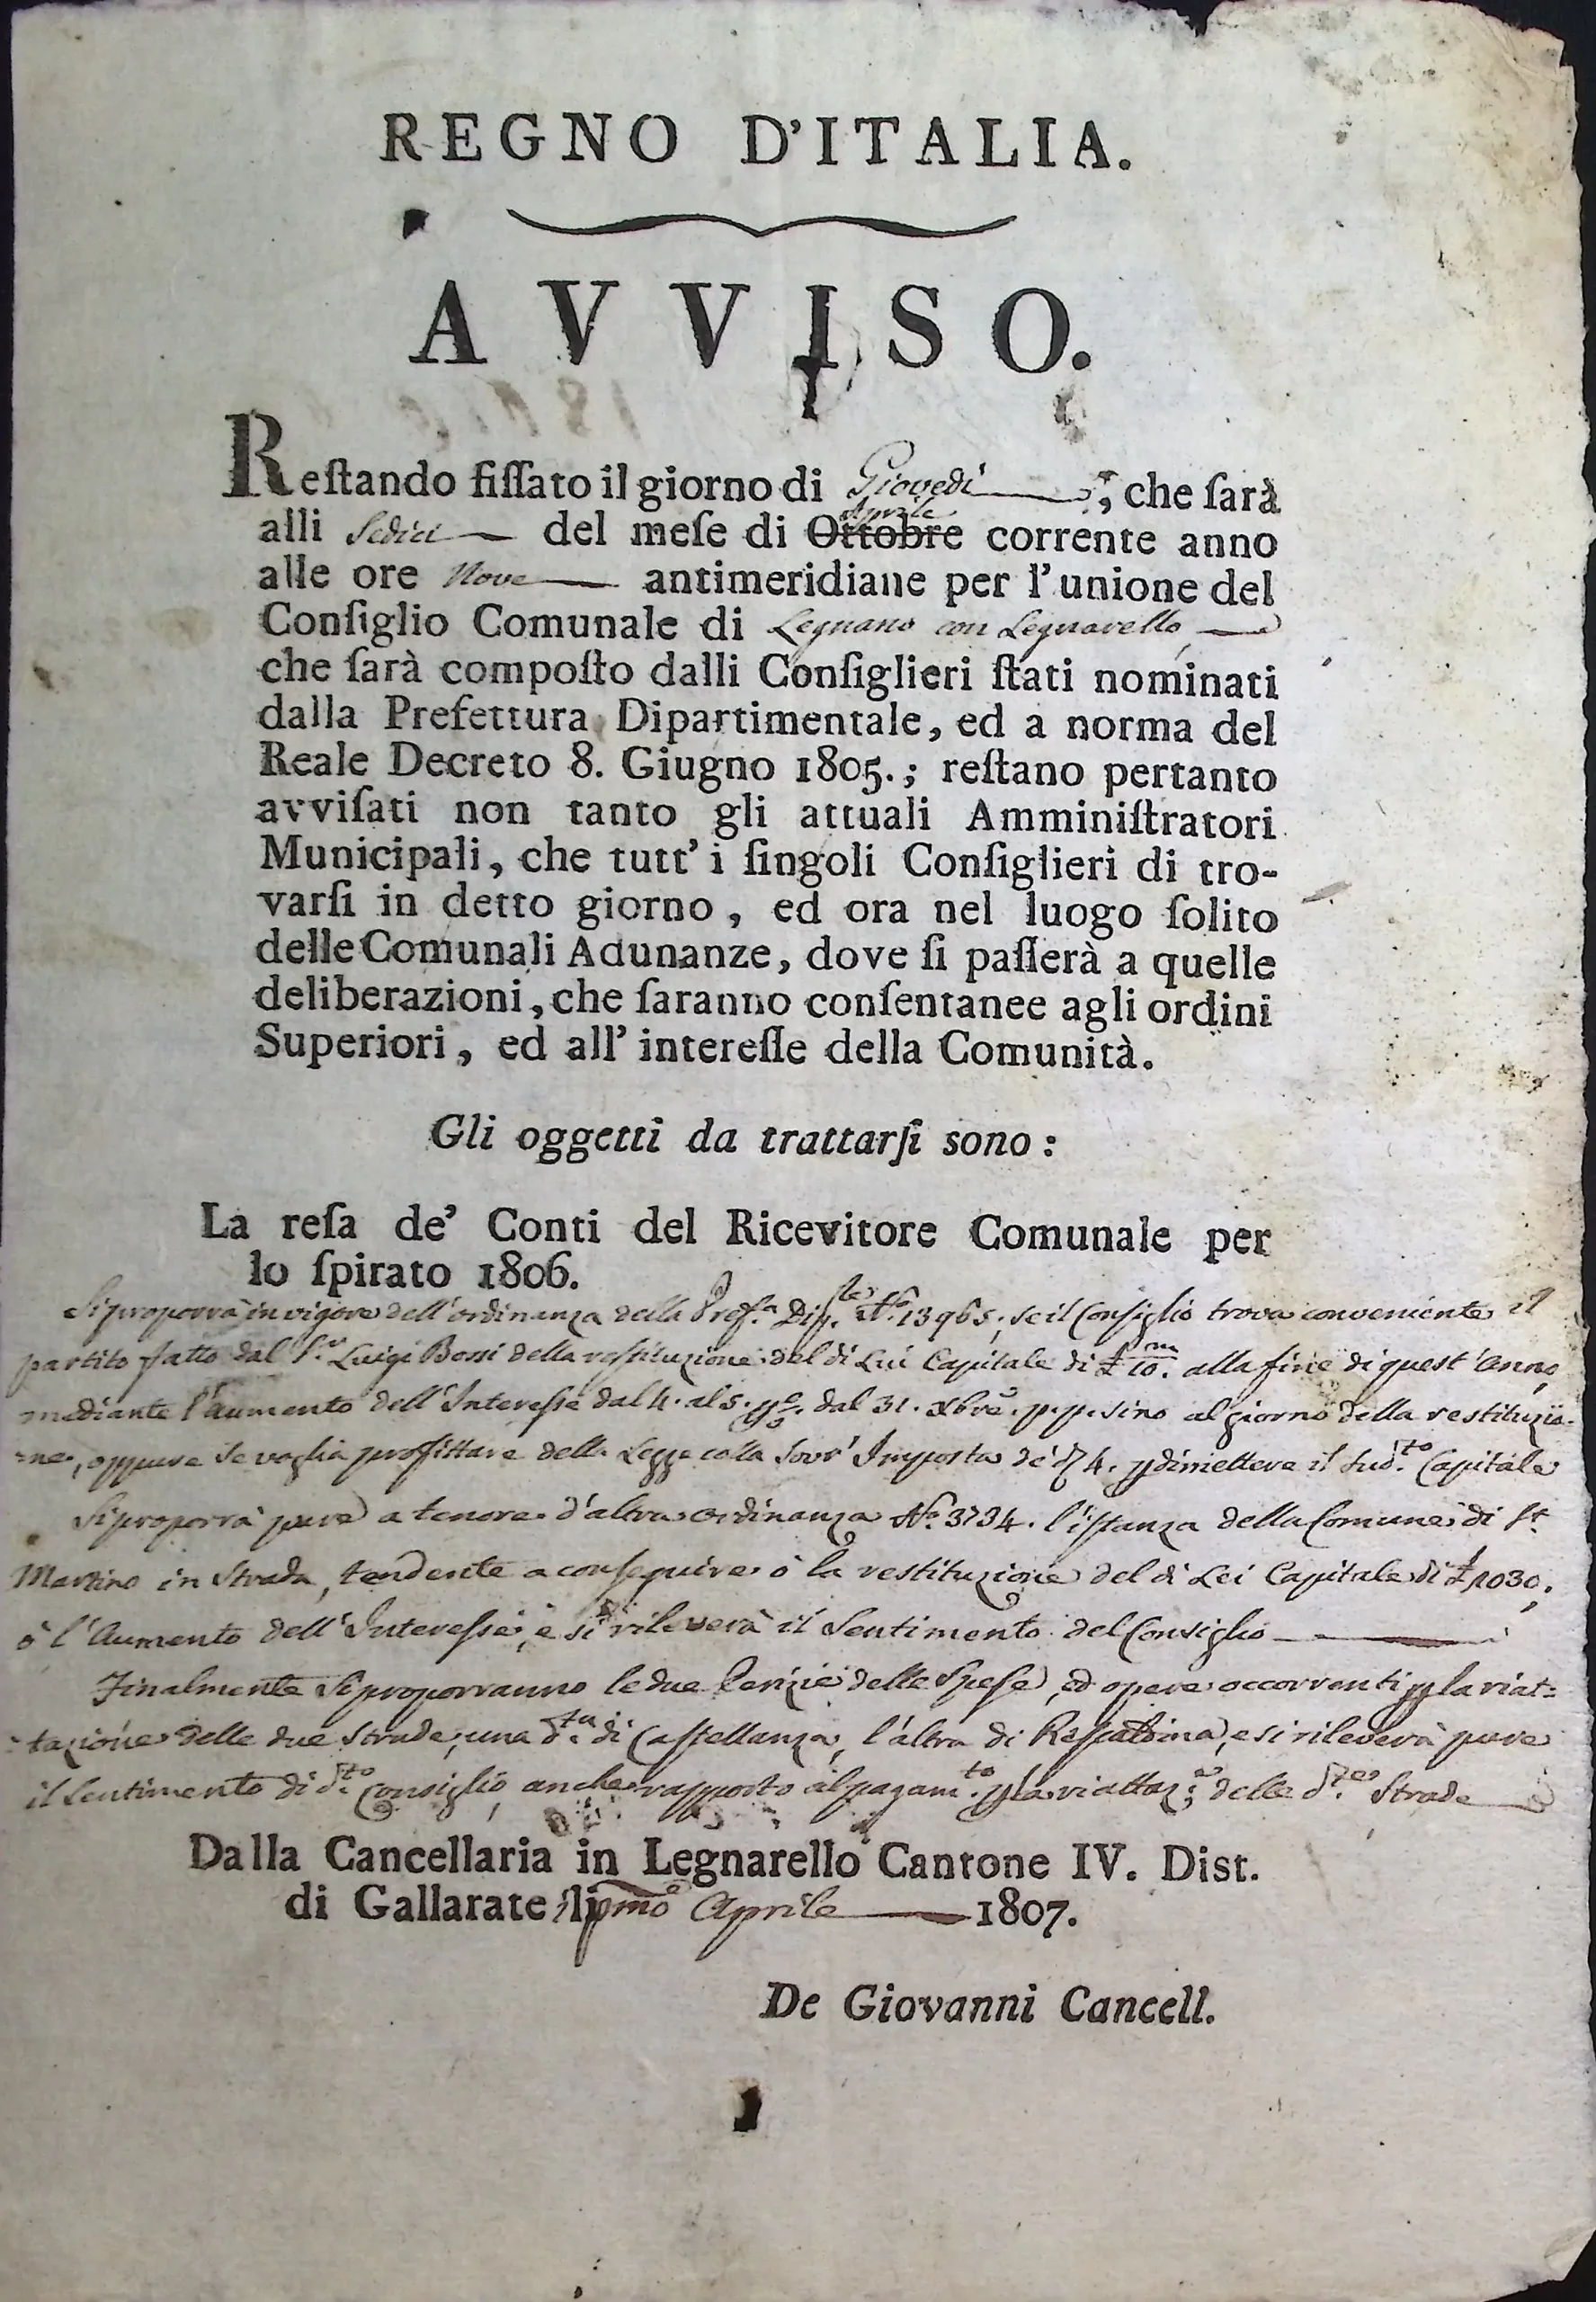 REGNO D'ITALIA.
AVVISO.
Reſtando fiſſato il giorno di Giovedì, che ſarà
Aprile
alli Sedici del meſe di Ottobre corrente anno
alle ore Nove antimeridiane per l'unione del
Conſiglio Comunale di Legnano con Legnarello,
che ſarà compoſto dalli Conſiglieri ſtati nominati
dalla Prefettura Dipartimentale, ed a norma del
Reale Decreto 8. Giugno 1805.; reſtano pertanto
avviſati non tanto gli attuali Amminiſtratori
Municipali, che tutt' i ſingoli Conſiglieri di tro-
varſi in detto giorno, ed ora nel luogo ſolito
delle Comunali Adunanze, dove ſi paſſerà a quelle
deliberazioni, che ſaranno conſentanee agli ordini
Superiori, ed all' intereſſe della Comunità.
Gli oggetti da trattarſi sono:
La reſa de' Conti del Ricevitore Comunale per
lo ſpirato 1806.
Si proporrà in vigore dell'ordinanza della Pref.ª Dip.le N.º 13965, se il Consiglio trova conveniente il
partito fatto dal S.r Luigi Bossi della restituzione del di Lui Capitale di £ 10.m alla fine di quest'Anno,
mediante l'aumento dell'Interesse dal 4. al 5. dal 31. Xbre. p.p. sino al giorno della restituzio-
=ne, oppure se voglia profittare della Legge colla Sovr'Imposta de' 4. dimettere il Sud.to Capitale
Si proporrà pure a tenore d'altra ordinanza N.º 3734. l'istanza della Comune di S.t
Martino in Strada, tendente a conseguire ò la restituzione del di Lei Capitale di £ 1030,
ò l'Aumento dell'Interesse, e si rileverà il Sentimento del Consiglio
Finalmente Si proporranno le due Perizie delle Spese, ed opere occorrenti la riat=
=tazione delle due Strade, una d.ta di Castellanza, l'altra di Rescaldina, e si rileverà pure
il Sentimento di d.to Consiglio, anche rapporto al pagam.to la riattaz.e delle d.te Strade
Dalla Cancellaria in Legnarello Cantone IV. Dist.
di Gallarate li pmo Aprile 1807.
De Giovanni Cancell.